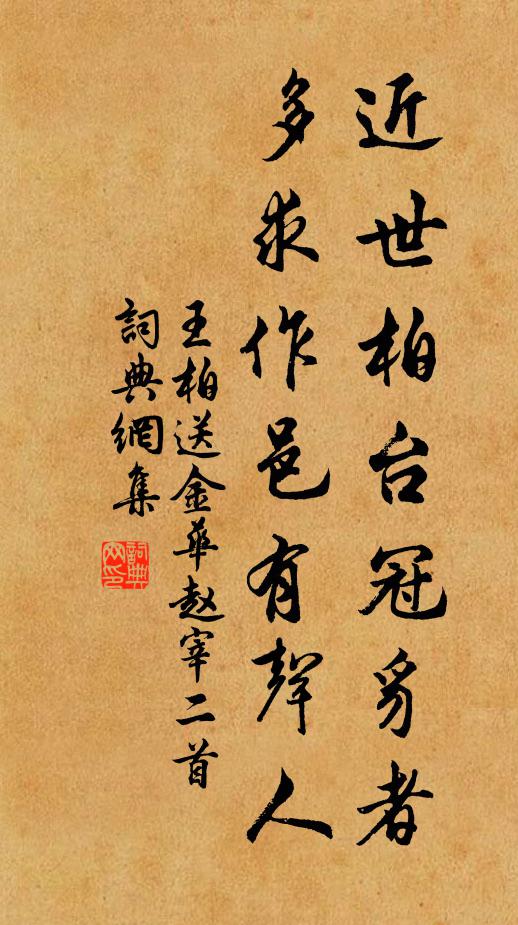 近世柏台冠豸者
多求作邑有聲人
王柏送金華赵宰二首
詞典網集
詞典网印